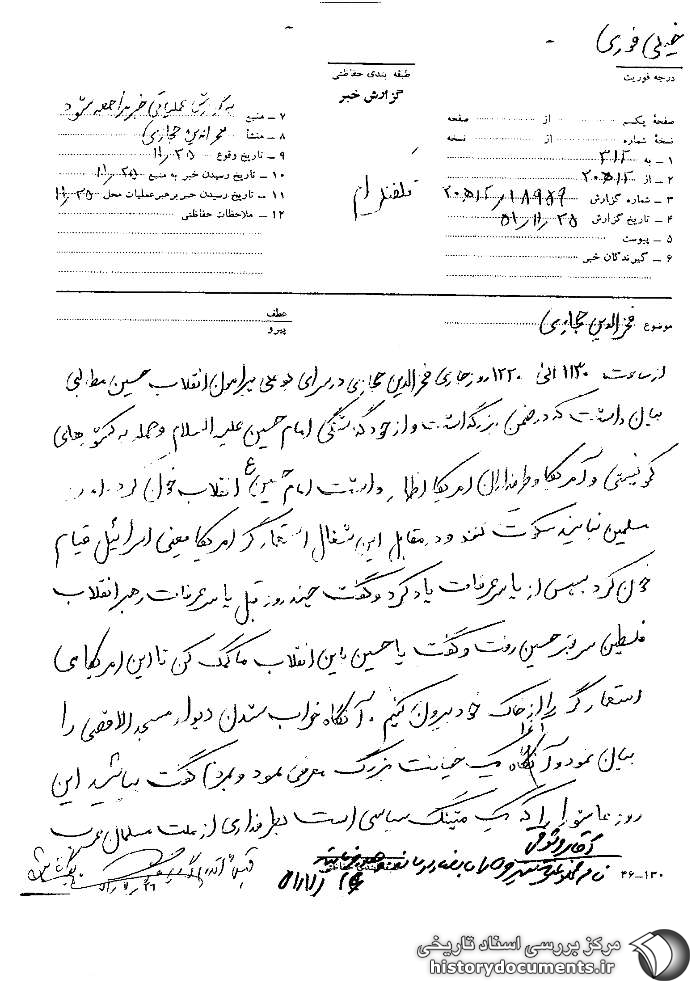 خیلی فوری
درجه فوریت
طبقه بندی حفاظتی
گزارش خبر
صفحهٔ یکم از صفحه
نسخهٔ شماره از نسخه
۱ – به ۳۱۲
۲ – از ۲۰ﻫ۱۲
۳ – شماره گزارش ۱۸۹۵۹/۲۰ﻫ۱۲
۴ – تاریخ گزارش ۵۱/۱۱/۲۵
۵ – پیوست
۶ – گیرندگان خبر
۷ – منبع به گزارش عملیاتی خبر مراجعه شود
۸ – منشأ سخرانی حجازی
۹ – تاریخ وقوع ۱۱/۲۵
۱۰ – تاریخ رسیدن خبر به منبع ۱۱/۲۵
۱۱ – تاریخ رسیدن خبر برهبر عملیات محل ۱۱/۲۵
۱۲ – ملاحظات حفاظتی
تلفنگرام
موضوع فخرالدین حجازی
عطف
پیرو
از ساعت ۱۱۳۰ الی ۱۲۲۰ روز جاری فخرالدین حجازی در سرای پیرامون انقلاب حسین مطالبی
بیان داشت که در ضمن بزرگداشت و از خود گذشتگی امام حسین علیه السلام و حمله به کشورهای
کمونیستی و آمریکا و طرفداران امریکا اظهار داشت امام حسین ع انقلاب خونین کرد
مسلمین نباید سکوت کنند و در مقابل این شغال استعمارگر امریکا یعنی اسرائیل قیام
خونین کرد سپس از یاسر عرفات یاد کرد و گفت چند روز قبل یاسر عرفات رهبر انقلاب
فلسطین سر قبر حسین رفت و گفت یا حسین باین انقلاب ما کمک کن تا این امریکای
استعمارگر را از خاک خود بیرون کنیم. آنگاه خراب شدن دیوار مسجد الاقصی را
بیان نمود و آنرا یک خیانت بزرگ معرفی نمود و گفت بیائید این
روز عاشورا را یک متینگ سیاسی است بطرفداری از ملت مسلمان عرب
۴۶–۱۳۰
مرکز بررسی اسناد تاریخی
historydocuments.ir